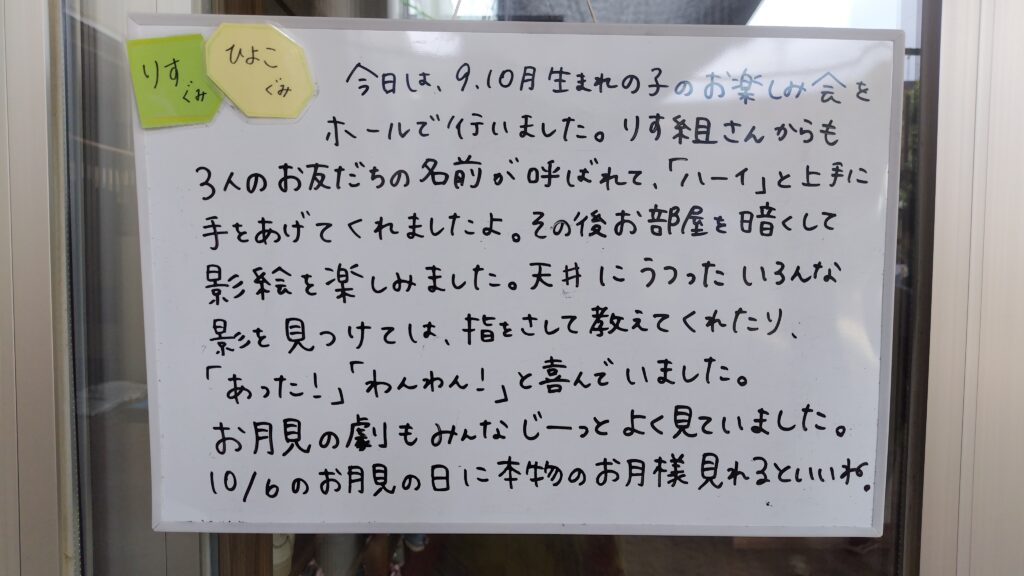 りす
ぐみ
ひよこ
ぐみ
今日は、9.10月生まれの子のお楽しみ会を
ホールで行いました。りす組さんからも
3人のお友だちの名前が呼ばれて、「ハーイ」と上手に
手をあげてくれましたよ。その後お部屋を暗くして
影絵を楽しみました。天井にうつったいろんな
影を見つけては、指をさして教えてくれたり、
「あった！」「わんわん！」と喜んでいました。
お月見の劇もみんなじーっとよく見ていました。
10/6のお月見の日に本物のお月様見れるといいね。